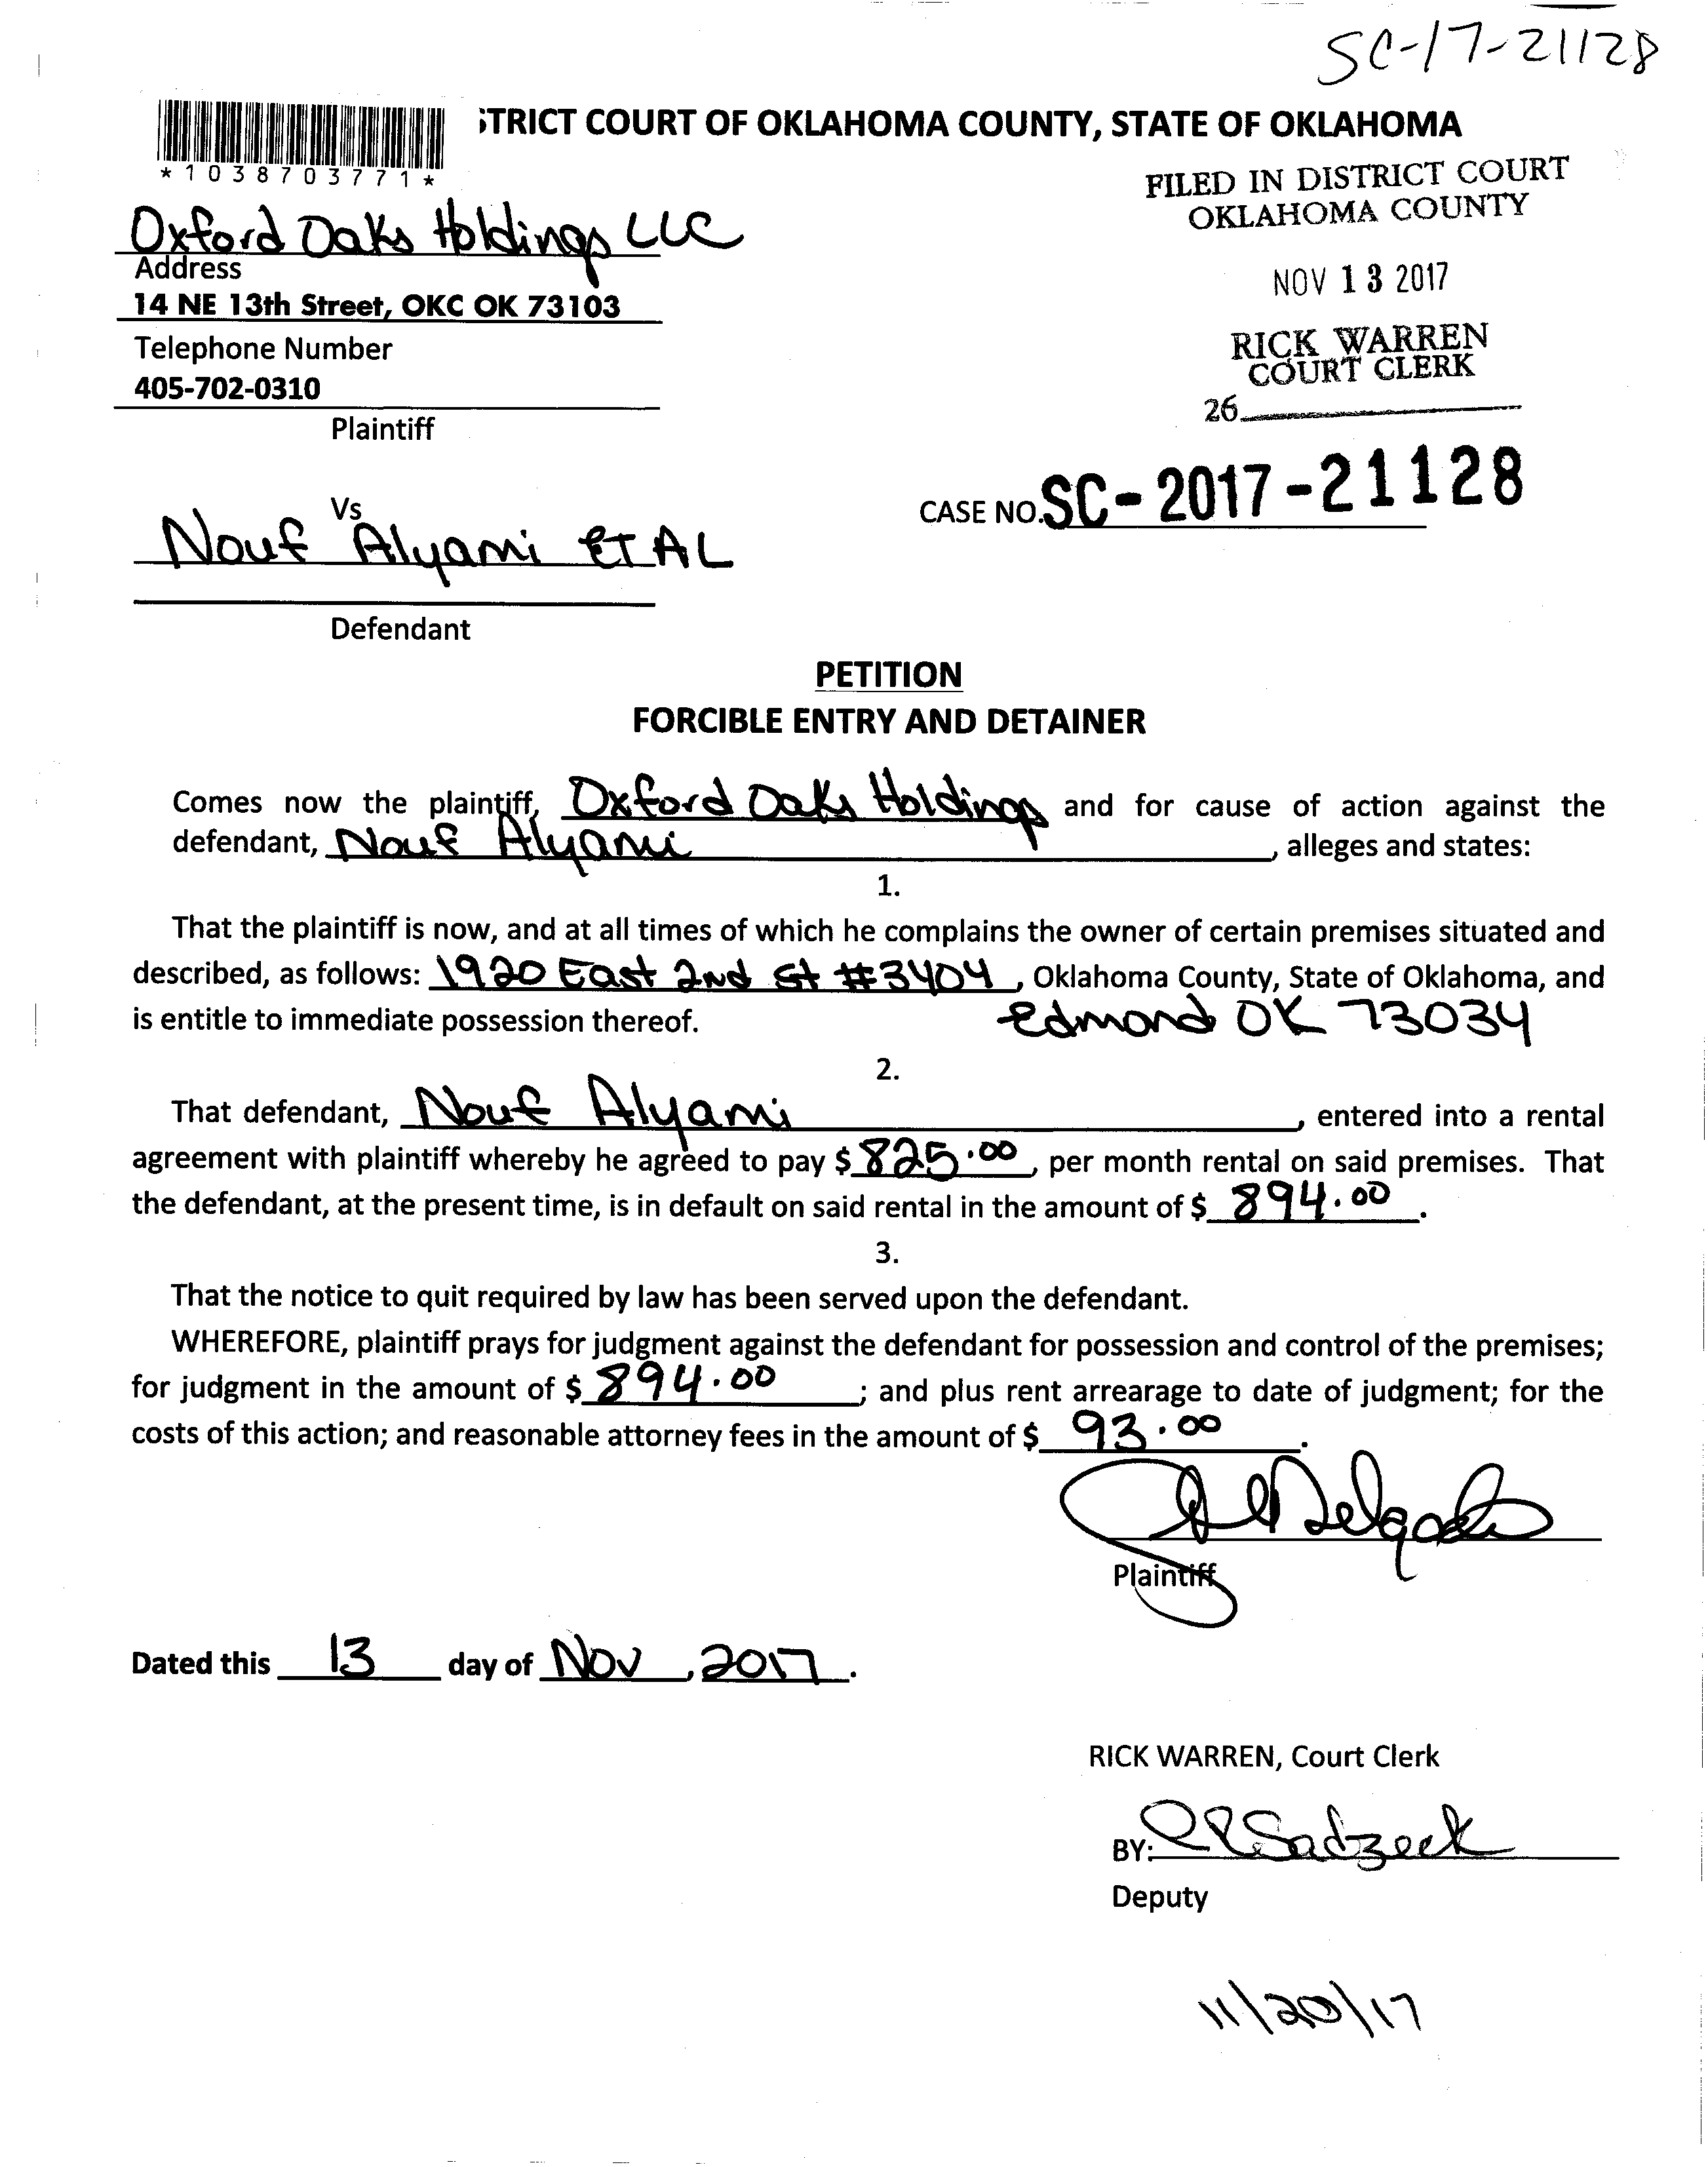 SC-17-21128
STRICT COURT OF OKLAHOMA COUNTY, STATE OF OKLAHOMA
*1038703771*
FILED IN DISTRICT COURT
OKLAHOMA COUNTY
Oxford Oaks Holdings LLC
Address
14 NE 13th Street, OKC OK 73103
NOV 13 2017
Telephone Number
405-702-0310
RICK WARREN
COURT CLERK
26
Plaintiff
Vs
CASE NO. SC-2017-21128
Nouf Alyami ET AL
Defendant
PETITION
FORCIBLE ENTRY AND DETAINER
Comes now the plaintiff, Oxford Oaks Holdings and for cause of action against the
defendant, Nouf Alyami, alleges and states:
1.
That the plaintiff is now, and at all times of which he complains the owner of certain premises situated and
described, as follows: 1920 East 2nd St #3404, Oklahoma County, State of Oklahoma, and
is entitle to immediate possession thereof. Edmond OK 73034
2.
That defendant, Nouf Alyami, entered into a rental
agreement with plaintiff whereby he agreed to pay $825.00, per month rental on said premises. That
the defendant, at the present time, is in default on said rental in the amount of $ 894.00.
3.
That the notice to quit required by law has been served upon the defendant.
WHEREFORE, plaintiff prays for judgment against the defendant for possession and control of the premises;
for judgment in the amount of $ 894.00; and plus rent arrearage to date of judgment; for the
costs of this action; and reasonable attorney fees in the amount of $ 93.00.
Delgado
Plaintiff
Dated this 13 day of Nov, 2017.
RICK WARREN, Court Clerk
BY: Sadzeck
Deputy
11/20/17